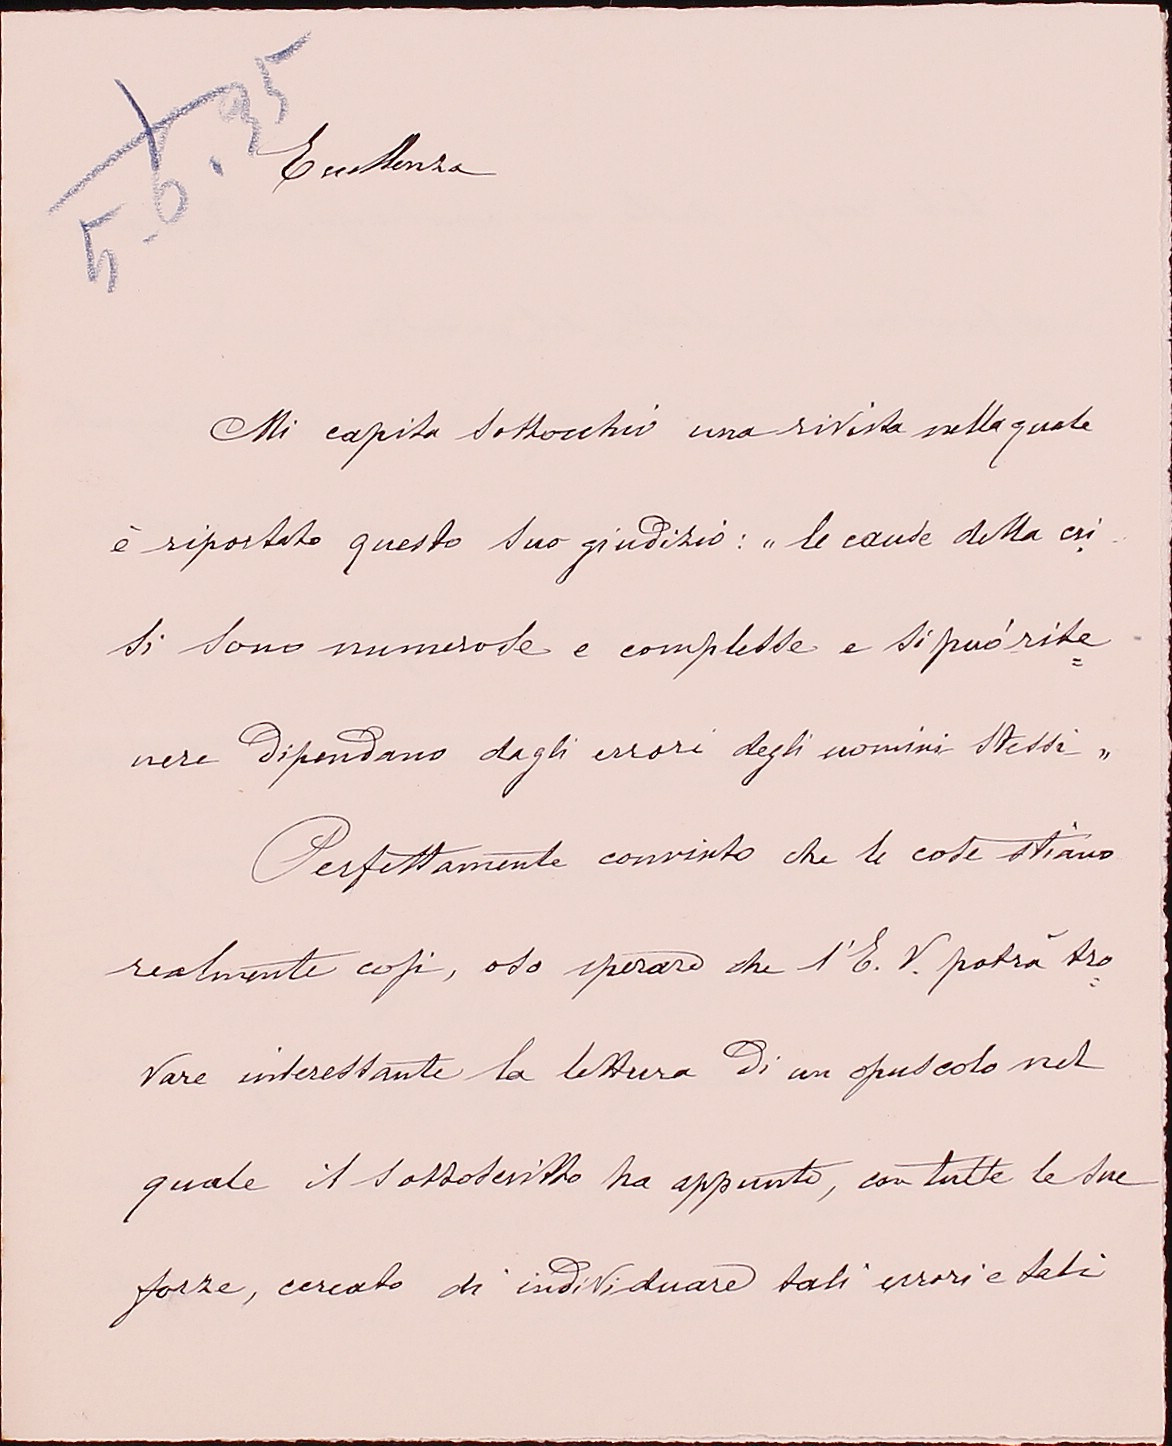 5-6.35
Eccellenza
Mi capita sottocchio una rivista nella quale
è riportato questo suo giudizio: „ le cause della cri
si sono numerose e complesse e si può rite=
nere dipendano dagli errori degli uomini stessi „
Perfettamente convinto che le cose stiano
realmente così, oso sperare che l'E. V. potrà tro=
vare interessante la lettura di un opuscolo nel
quale il sottoscritto ha appunto, con tutte le sue
forze, cercato di individuare tali errori e tali